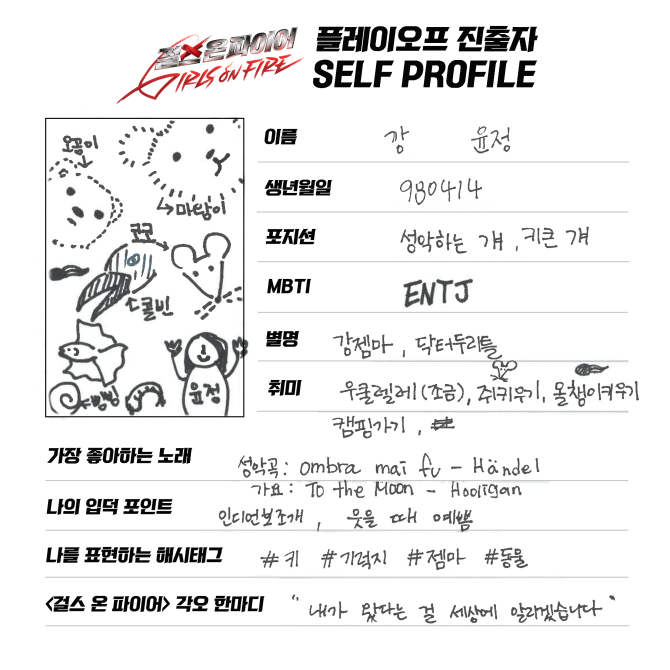 걸스온파이어
GIRLS ON FIRE
플레이오프 진출자
SELF PROFILE
오곰이
마담이
코코
콜빈
빙빙
윤정
이름 강 윤정
생년월일 980414
포지션 성악하는 걔, 키큰 걔
MBTI ENTJ
별명 강젬마, 닥터두리틀
취미 우쿨렐레(조금), 쥐키우기, 올챙이키우기
캠핑가기,
가장 좋아하는 노래 성악곡: ombra mai fu - Händel
가요: To the Moon - Hooligan
나의 입덕 포인트 인디언보조개, 웃을 때 예쁨
나를 표현하는 해시태그 #키 #기럭지 #젬마 #동물
<걸스 온 파이어> 각오 한마디 "내가 왔다는 걸 세상에 알리겠습니다"